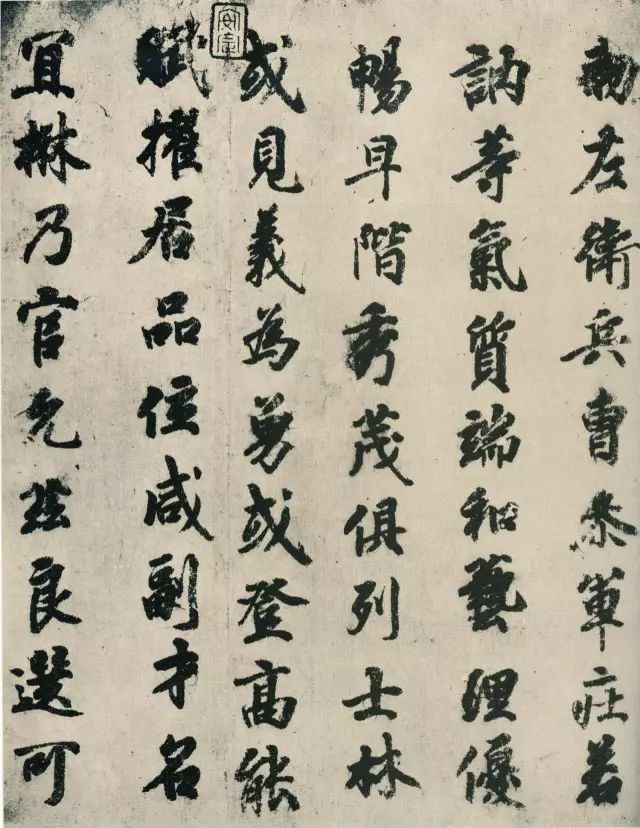 勅左衛兵曹叅軍庄若
訥等氣質端和藝理優
暢早階秀茂俱列士林
或見義為勇或登高能
賦擢居品位咸副才名
宜楙乃官允茲良選可